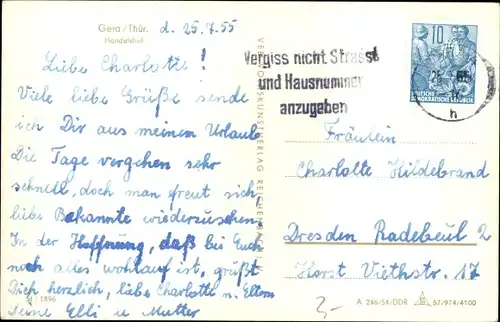 Gera/Thür.
Handelshof
d. 25.7.55
Liebe Charlotte!
Viele liebe Grüße sende
ich Dir aus meinem Urlaub.
Die Tage vergehen sehr
schnell, doch man freut sich
liebe Bekannte wiederzusehen.
In der Hoffnung, daß bei Euch
noch alles wohlauf ist, grüßt
Dich herzlich, liebe Charlotte u. Eltern
Deine Elli u. Mutter
1896
Vergiss nicht Strasse
und Hausnummer
anzugeben
10
DEUTSCHE
DEMOKRATISCHE REPUBLIK
h
Fräulein
Charlotte Hildebrand
Dresden Radebeul 2
Horst Viethstr. 17
3,-
A 246/54/DDR 57/974/4100